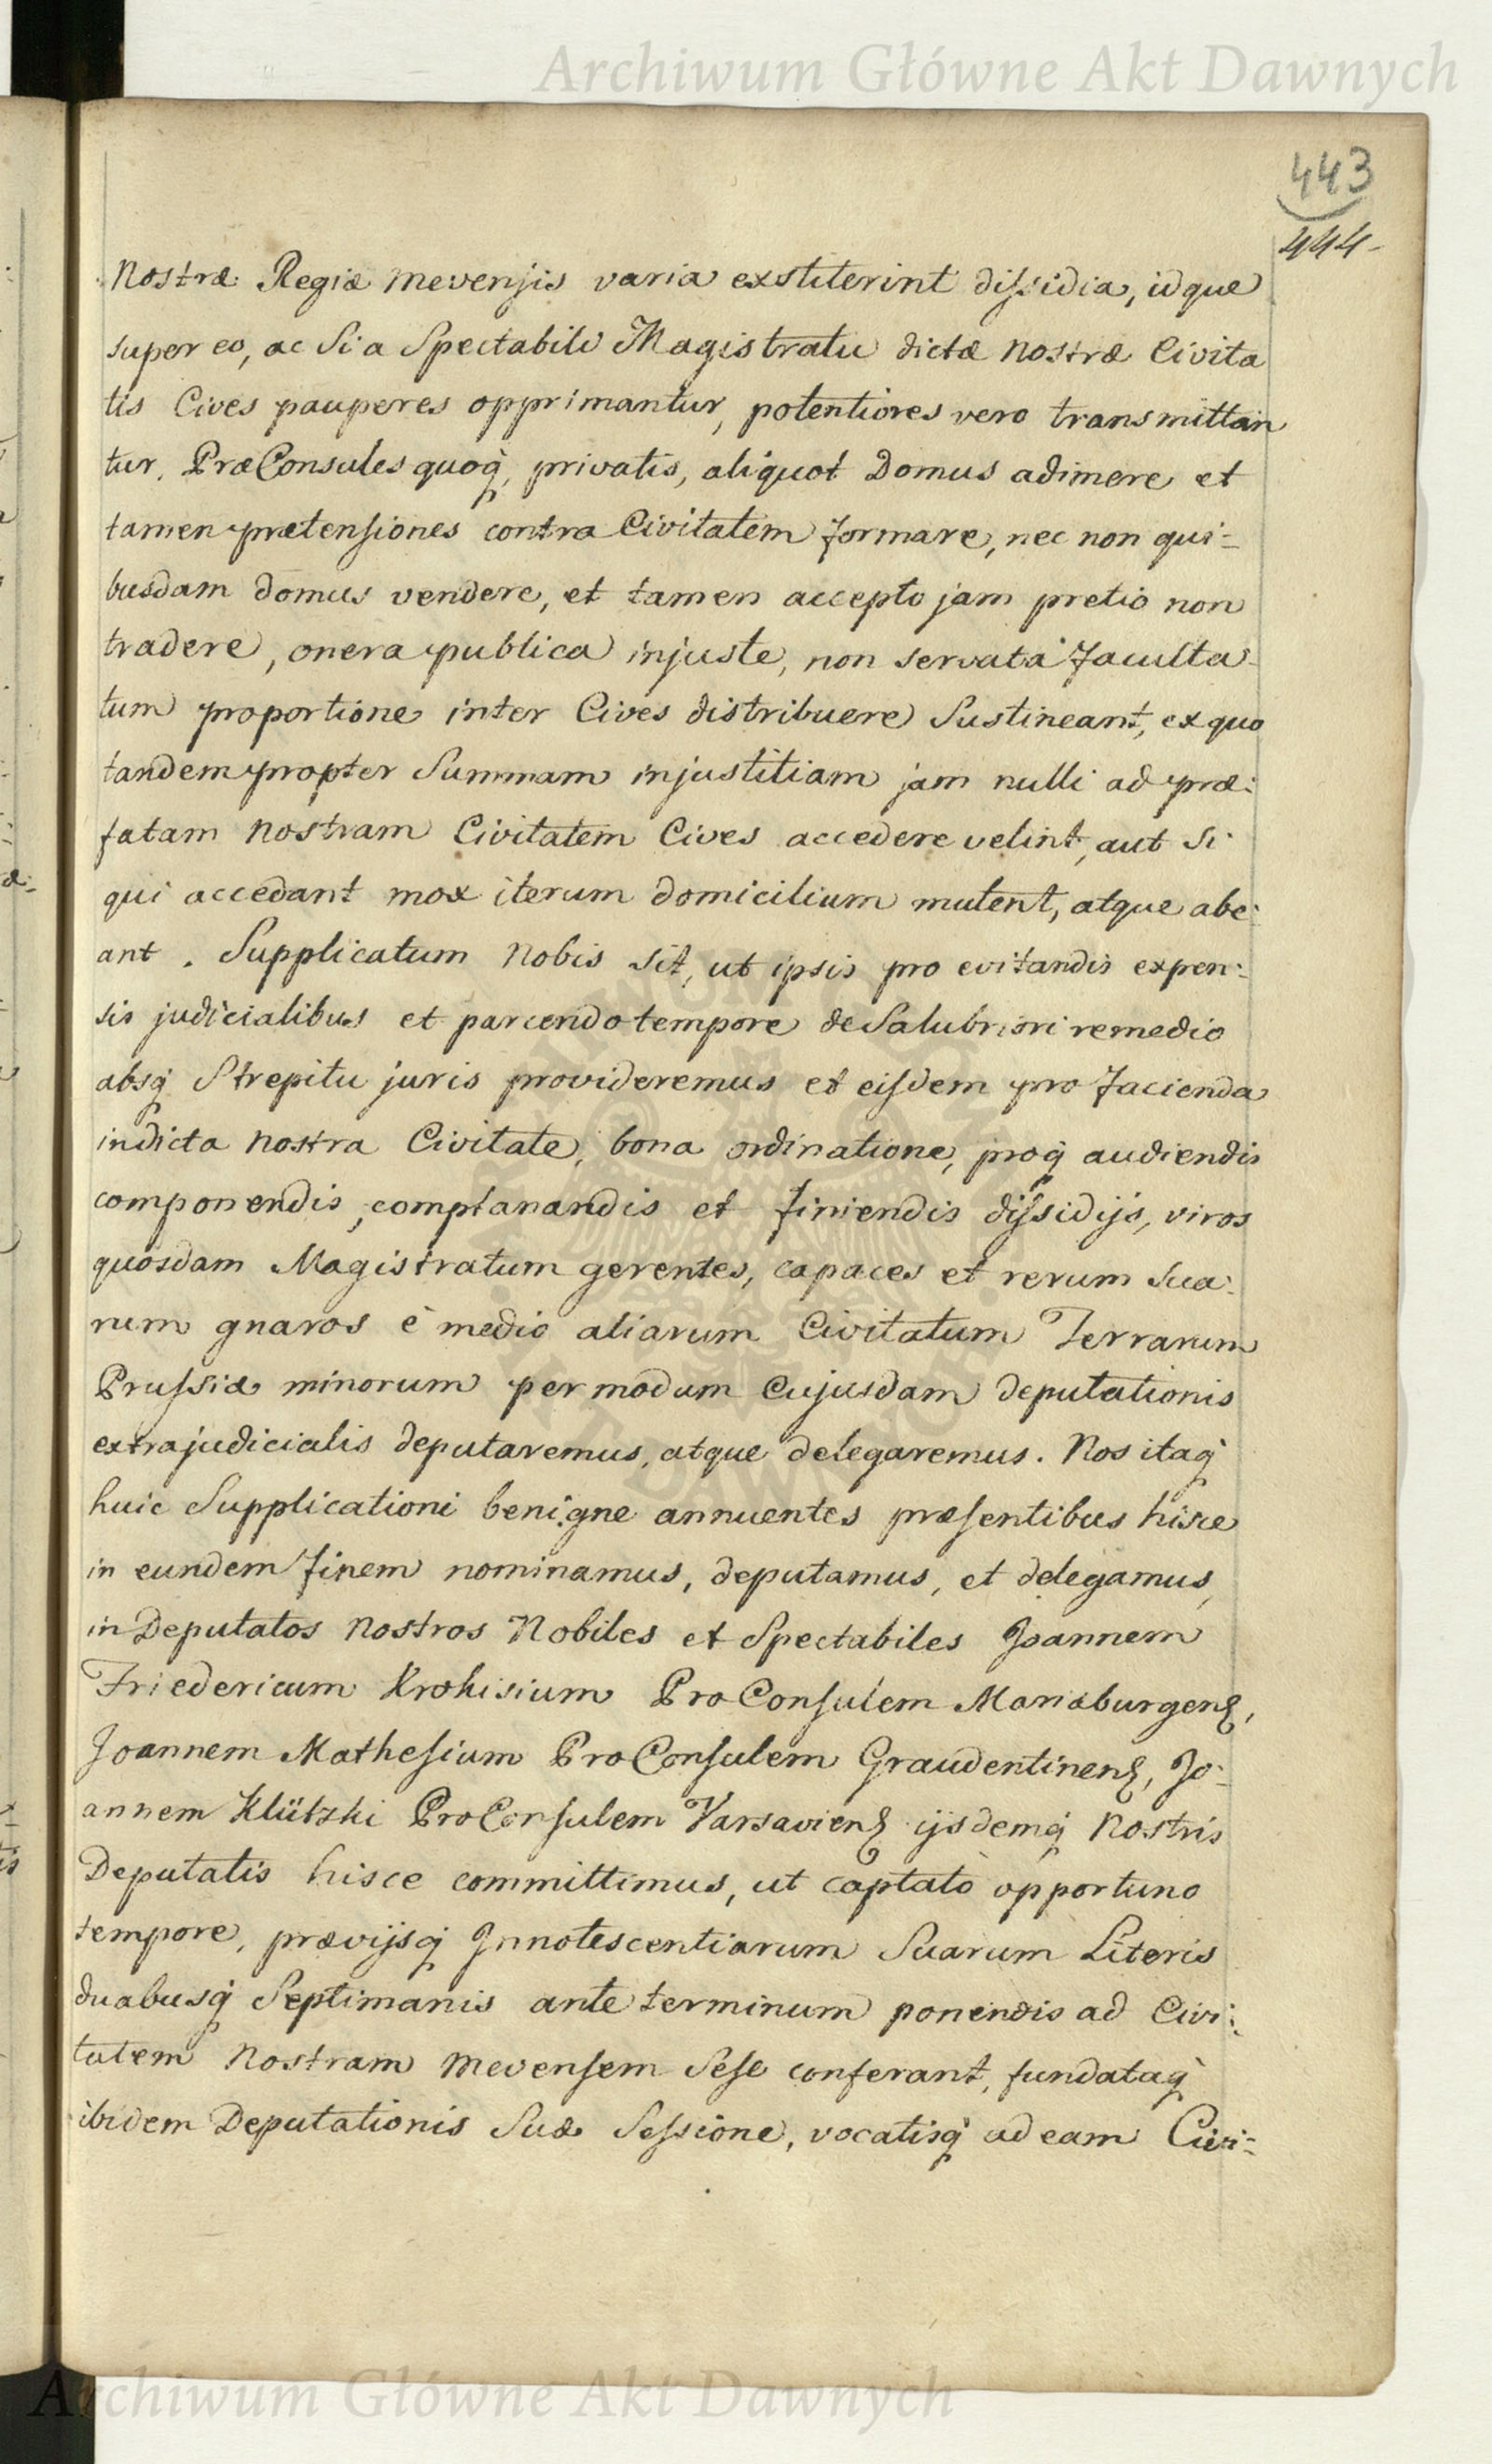 Archiwum Główne Akt Dawnych
443
444-
Nostræ Regiæ mevensis varia exstiterint dissidia, idque
super eo, ac Si a Spectabili Magistratu dictæ nostræ Civita
tis Cives pauperes opprimantur, potentiores vero transmittan
tur, PræConsules quoq, privatis, aliquot Domus adimere et
tamen prætensiones contra Civitatem formare, nec non qui-
busdam domus vendere, et tamen accepto jam pretio non
tradere, onera publica injuste, non servata faculta-
tum proportione inter Cives distribuere Sustineant, ex quo
tandem propter Summam injustitiam jam nulli ad præ:
fatam nostram Civitatem Cives accedere velint, aut Si
qui accedant mox iterum domicilium mutent, atque abe:
ant. Supplicatum Nobis sit, ut ipsis pro evitandis expen:
sis judicialibus et parcendo tempore de Salubriori remedio
absq Strepitu juris provideremus et eisdem pro facienda
in dicta nostra Civitate, bona ordinatione, proq audiendis
componendis, complanandis et finiendis dissidijs, viros
quosdam Magistratum gerentes, capaces et rerum sua:
rum gnaros è medio aliarum Civitatum Terrarum
Prussiæ minorum per modum Cujusdam deputationis
extrajudicialis deputaremus, atque delegaremus. Nos itaq
huic Supplicationi benigne annuentes præsentibus hisce
in eundem finem nominamus, deputamus, et delegamus,
in Deputatos nostros Nobiles et Spectabiles Joannem
Friedericum Krohisium ProConsulem Mariæburgens,
Joannem Mathesium ProConsulem Graudentinens, Jo-
annem Klützki ProConsulem Varsaviens ijsdemq Nostris
Deputatis hisce committimus, ut captato opportuno
tempore, prævijsq Innotescentiarum Suarum Literis
duabusq Septimanis ante terminum ponendis ad Civi:
tatem Nostram Mevensem Sese conferant, fundataq
ibidem Deputationis Suæ Sessione, vocatisq ad eam Civi-
Archiwum Główne Akt Dawnych